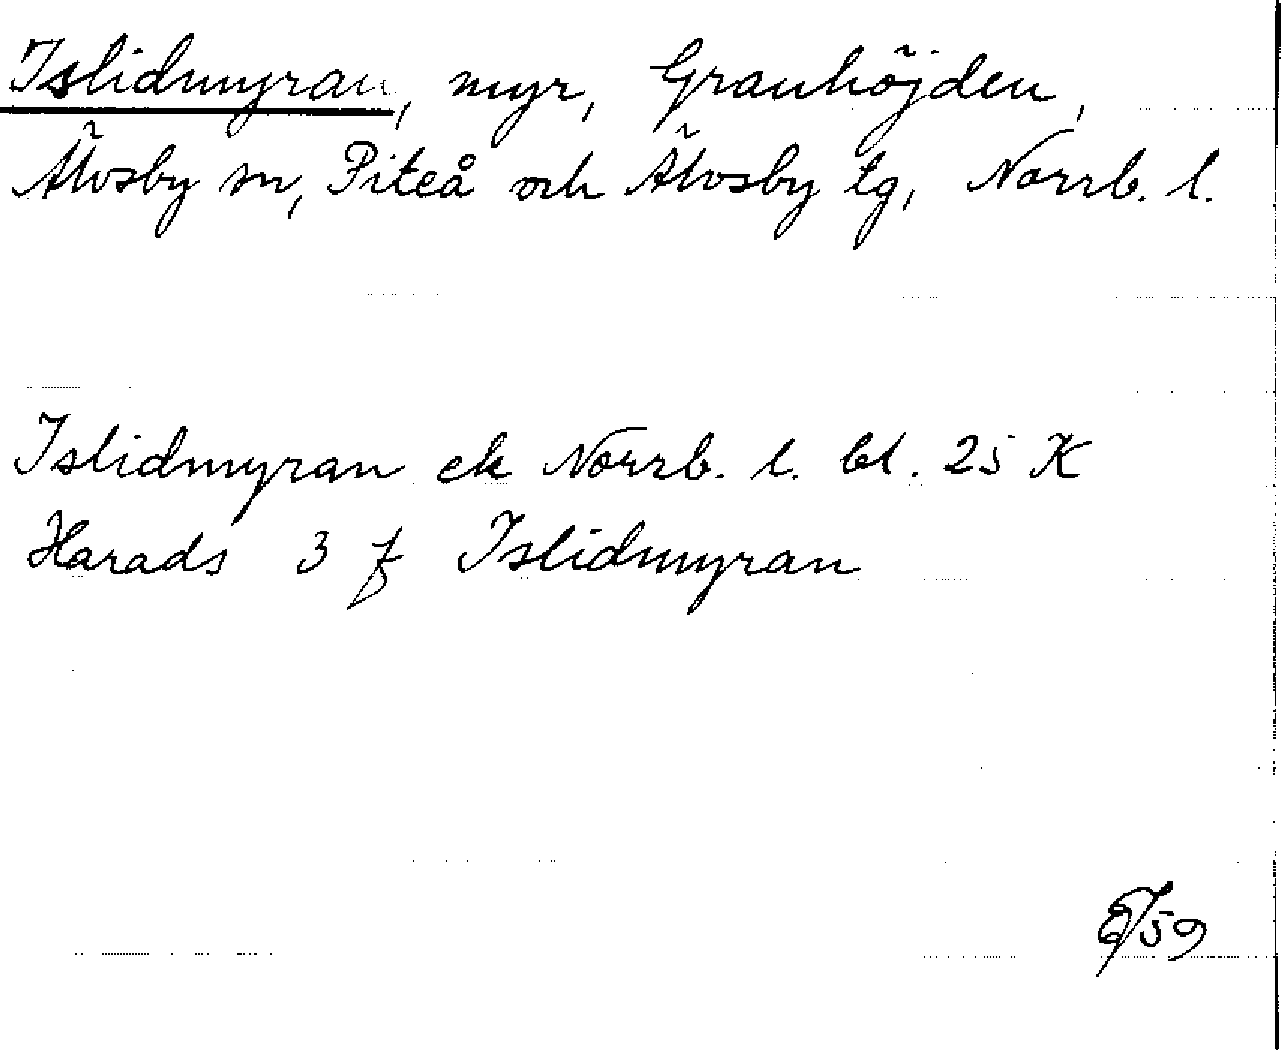 Islidmyran, myr, Granhöjden,
Älvsby sn, Piteå och Älvsby tg, Norrb. l.
Islidmyran ek Norrb. l. bl. 25 K
Harads 3 f Islidmyran
59